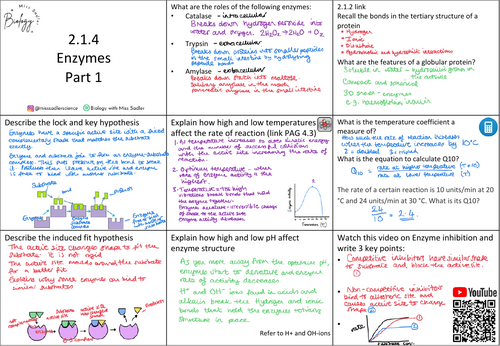 Miss Sadler
Biology
2.1.4
Enzymes
Part 1
@missadlerscience
Biology with Miss Sadler
What are the roles of the following enzymes:
• Catalase - intracellular
Breaks down hydrogen peroxide into
water and oxygen. 2H2O2 → 2H2O + O2
• Trypsin - extracellular
Breaks down proteins into smaller peptides
in the small intestine by hydrolysing
peptide bonds
• Amylase - extracellular
Breaks down starch into maltose.
Salivary amylase in the mouth
pancreatic amylase in the small intestine
2.1.2 link
Recall the bonds in the tertiary structure of a
protein
• Hydrogen
• Ionic
• Disulphide
• Hydrophobic and hydrophilic interactions
What are the features of a globular protein?
Soluble in water - hydrophilic groups on
the outside
Compact and spherical
3D shape - enzymes
e.g. haemoglobin, insulin
Describe the lock and key hypothesis
Enzymes have a specific active site with a fixed
complementary shape that matches the substrate
exactly.
Enzyme and substrate join to form an enzyme-substrate
complex. This puts pressure on the bond to break
it. Products leave active site and enzyme
is free to bind with another substrate.
Substrate
Enzyme
Explain how high and low temperatures
affect the rate of reaction (link PAG 4.3)
1. As temperature increases so does kinetic energy
and the number of successful collisions
with the active site increasing the rate of
reaction.
2. Optimum temperature - when
rate of enzyme activity is the
highest
3. Temperature too high
vibrations break bonds that hold
the enzyme together.
Enzyme denatures - irreversible change
of shape to the active site
Enzyme activity decreases.
What is the temperature coefficient a
measure of?
How much the rate of reaction increases
when the temperature increases by 10°C
2 = doubled 3 = tripled
What is the equation to calculate Q10?
Q10 = rate at higher temperature (T+10)
rate at lower temperature (T)
The rate of a certain reaction is 10 units/min at 20
°C and 24 units/min at 30 °C. What is its Q10?
24
10 = 2.4
Describe the induced fit hypothesis
The active site changes shape to fit the
substrate. It is not rigid
The active site moulds around the substrate
for a better fit
Explains why some enzymes can bind to
similar substrates
Explain how high and low pH affect
enzyme structure
As you move away from the optimum pH,
enzymes start to denature and enzyme
rate of activity decreases
H+ and OH- ions found in acids and
alkalis break the Hydrogen and ionic
bonds that hold the enzymes tertiary
structure in place.
Refer to H+ and OH-ions
Watch this video on Enzyme inhibition and
write 3 key points:
• Competitive inhibitors have similar shape
to substrate and block the active site.
①
• Non-competitive inhibitors
bind to allosteric site and
causes active site to change
shape ②
YouTube
rate
①
②